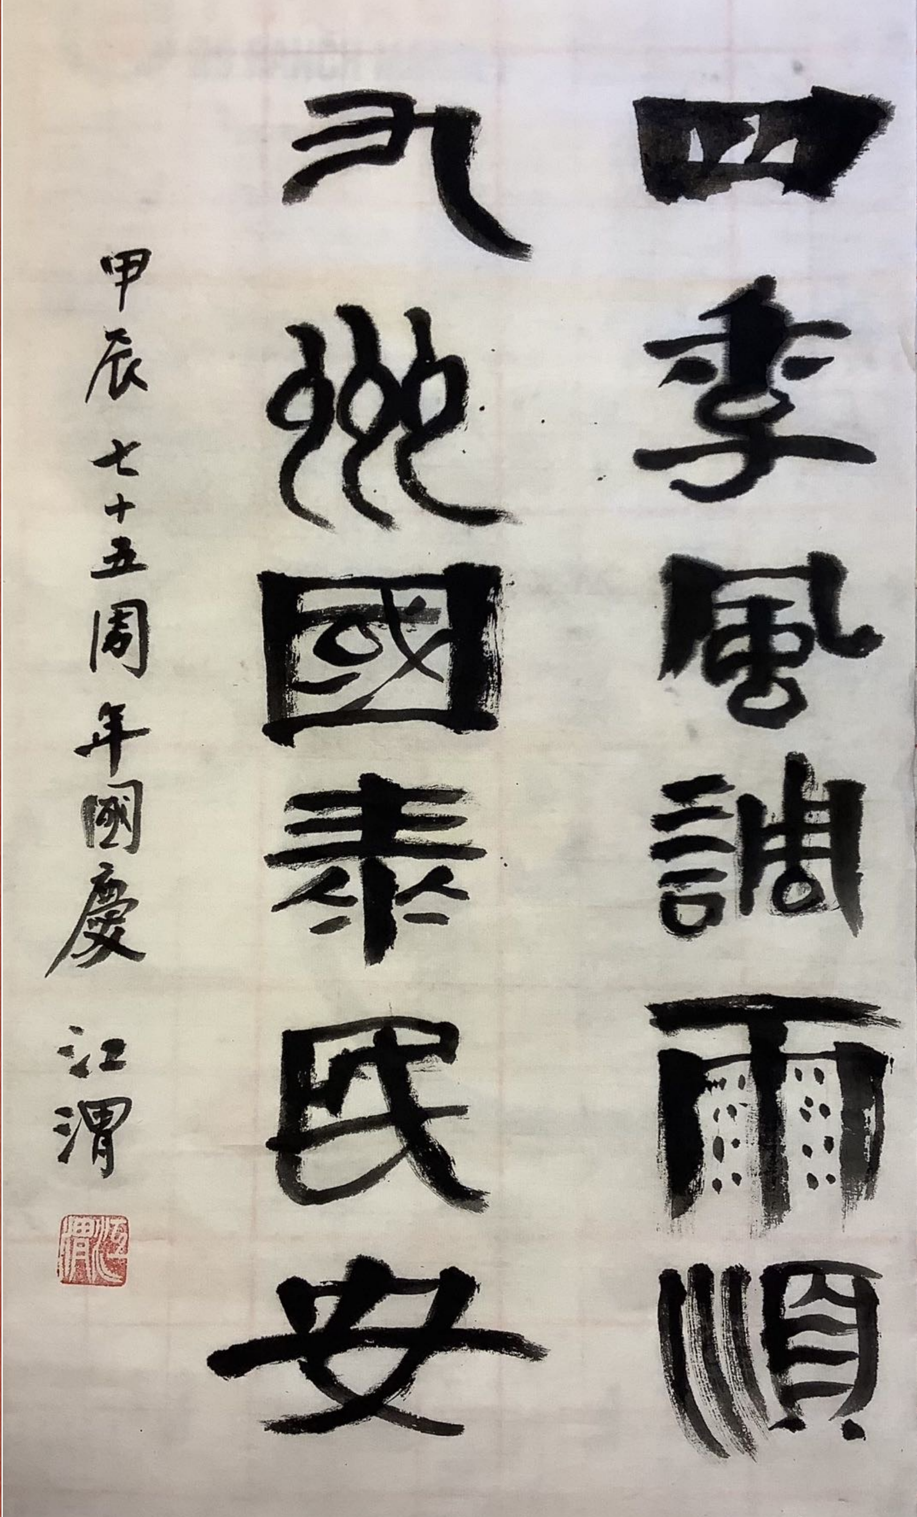 四季風調雨順
九州國泰民安
甲辰七十五周年國慶 江渭
江渭